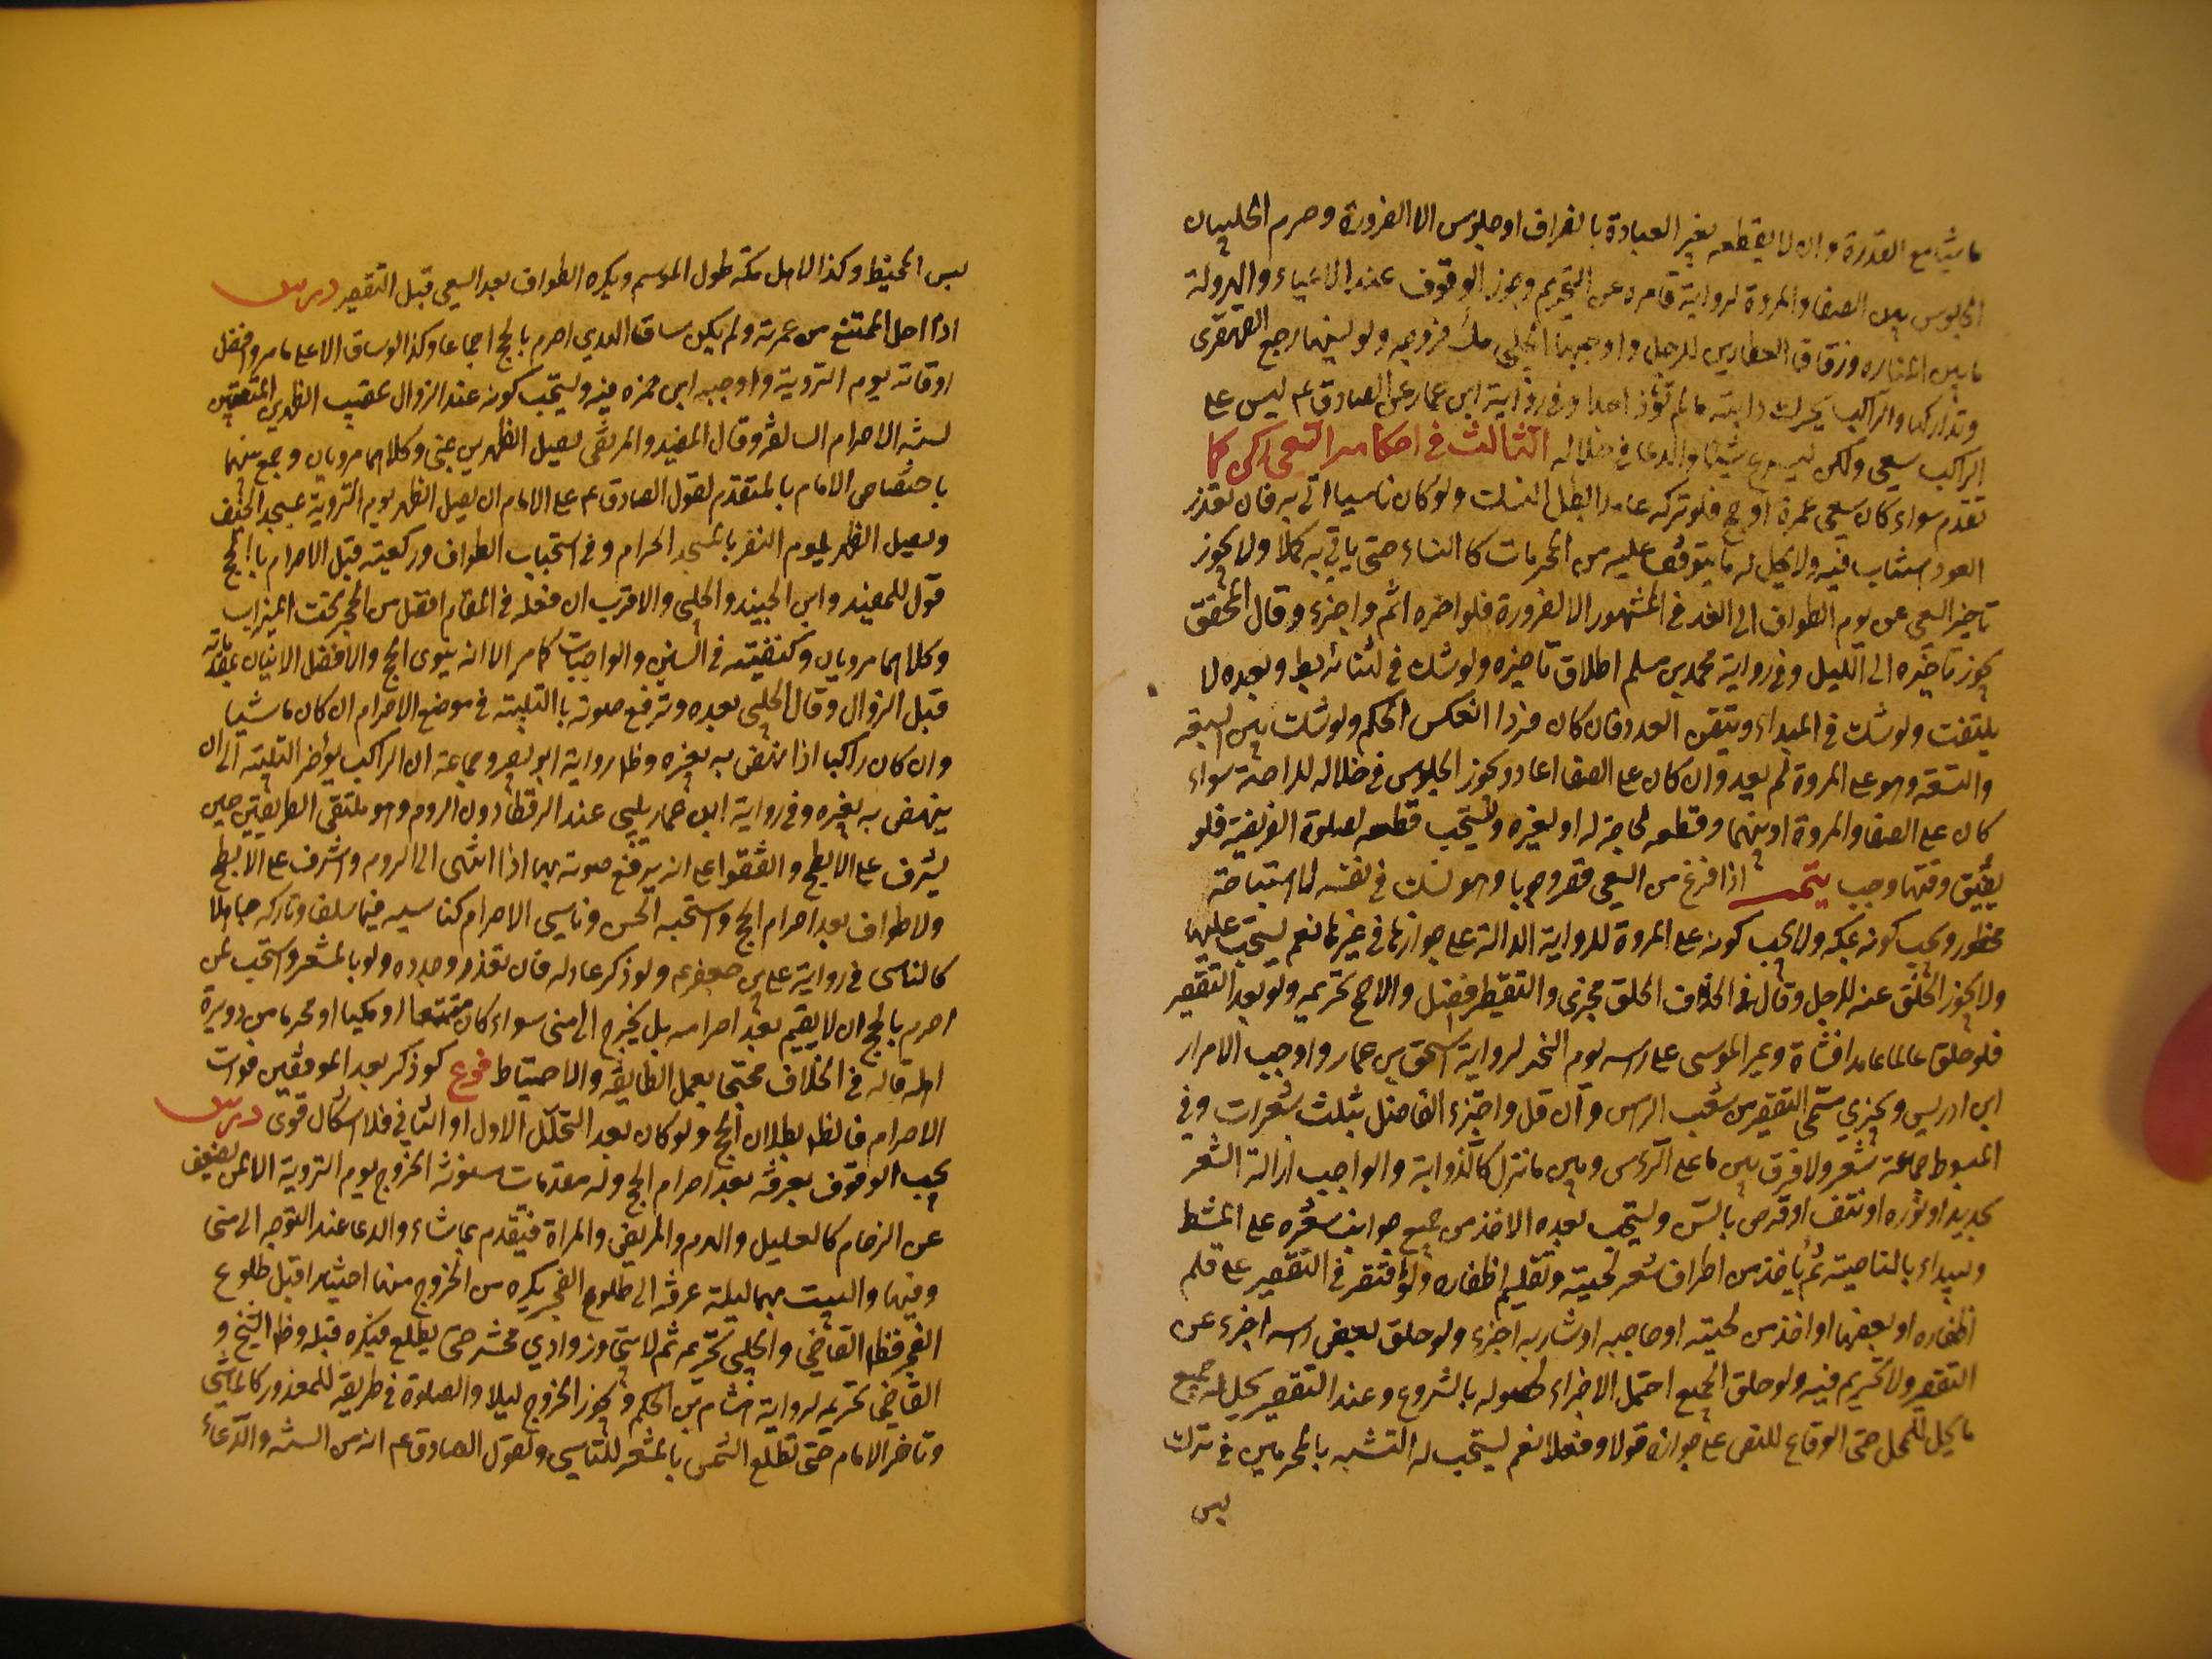 ماشيا مع القدرة وان لا يقطعه بغير العبادة بانصراف او جلوس الا الضرورة وحرم الحلبيان
الجلوس بين الصفا والمروة لرواية قاصرة عن التحريم وجوز الوقوف عند الاعياء والهرولة
ما بين المناره وزقاق العطارين للرجل واوجبها الحلبي ملأ فروجه ولو نسيها رجع القهقرى
وتداركها والراكب يحرك دابته ما لم تؤذ احدا وفي رواية ابن عمار عن الصادق ع ليس على
الراكب سعي ولكن ليسرع شيئا والدعا في خلاله الثالث في احكامه السعي ركن كما
تقدم سواء كان سعي عمرة او حج فلو تركه عامدا بطل النسك ولو كان ناسيا اتى به فان تعذر
العود استناب فيه ولا يحل له ما يتوقف عليه من المحرمات كالنساء حتى ياتي به كملا ولا يجوز
تاخير السعي عن يوم الطواف الى الغد في المشهور الا لضرورة فلو اخره اثم واجزء وقال المحقق
يجوز تاخيره الى الليل وفي رواية محمد بن مسلم اطلاق تاخيره ولو شك في اثنائه بطل وبعده لا
يلتفت ولو شك في المبداء وتيقن العدد فان كان فردا انعكس الحكم ولو شك بين السبعه
والتسعه وهو على المروة لم يعد وان كان على الصفا اعاد ويجوز الجلوس في خلاله للراحة سواء
كان على الصفا والمروة او بينهما وقطعه لحاجة له او لغيره ويستحب قطعه لصلوة الفريضة فلو
يضيق وقتها وجب يتمه اذا فرغ من السعي قصر وجوبا وهو نسك في نفسه لا استباحة
محظور ويجب كونه بمكه ولا يجب كونه على المروة للرواية الدالة على جوازها في غيرها نعم يستحب عليها
ولا يجوز الحلق عنه للرجل وقال في الخلاف الحلق مجزي والتقصير افضل والاصح تحريمه ولو بعد التقصير
فلو حلق عالما عامدا فشاة ويمر الموسى على راسه يوم النحر لرواية اسحق بن عمار واوجب الامرار
ابن ادريس ويجزي مسمى التقصير من شعر الراس وان قل واجتزء الفاضل بثلث شعرات وفي
المبسوط جماعة شعر ولا فرق بين ما على الراس وبين ما نزل كالذوابة والواجب ازالة الشعر
بحديد او نوره او نتف او قرص بالسن ويستحب بعده الاخذ من جميع جوانب شعره على المشط
وليبداء بالناصية ثم ياخذ من اطراف شعر لحيته وتقليم اظفاره ولو اقتصر في التقصير على قلم
اظفاره او بعضها او اخذ من لحيته او حاجبه او شاربه اجزء ولو حلق بعض راسه اجزء عن
التقصير ولا تحريم فيه ولو حلق الجميع احتمل الاجزاء لحصوله بالشروع وعند التقصير يحل له جميع
ما يحل للمحل حتى الوقاع للنص على جوازه قولا وفعلا نعم يستحب له التشبه بالمحرمين في ترك
لبس
لبس المخيط وكذا لاهل مكة طول الموسم ويكره الطواف بعد السعي قبل التقصير درس
اذا احل المتمتع من عمرته ولم يكن ساق الهدي احرم بالحج اجماعا وكذا لو ساق الا على ما مر وافضل
اوقاته يوم التروية واوجبه ابن حمزه فيه ويستحب كونه عند الزوال عقيب الظهرين المتعقبين
لسنة الاحرام السالفة وقال المفيد والمرتضى يصلي الظهرين بمنى وكلاهما مرويان وجمع بينهما
باختصاص الامام بالمتقدم لقول الصادق ع على الامام ان يصلي الظهر يوم التروية بمسجد الخيف
ويصلي الظهر ليوم النفر بالمسجد الحرام وفي استحباب الطواف وركعتيه قبل الاحرام بالحج
قول للمفيد وابن الجنيد والحلبي والاقرب ان فعله في المقام افضل من الحجر تحت الميزاب
وكلاهما مرويان وكيفيته في السنن والواجبات كما مر الا انه ينوي الحج والافضل الاتيان بمقدماته
قبل الزوال وقال الحلبي بعده وترفع صوته بالتلبية في موضع الاحرام ان كان ماشيا
وان كان راكبا اذا نهض به بعيره وظاهر رواية ابو بصير وجماعة ان الراكب يؤخر التلبية الى ان
ينهض به بعيره وفي رواية ابن عمار يلبي عند الرقطا دون الردم وهو ملتقى الطريقين حين
يشرف على الابطح واتفقوا على انه يرفع صوته بها اذا انتهى الى الردم واشرف على الابطح
ولا طواف بعد احرام الحج واستحبه الحسن وناسي الاحرام كناسيه فيما سلف وتاركه جاهلا
كالناسي في رواية علي بن جعفر ع ولو ذكر عاد له فان تعذر جدده ولو بالمشعر واستحب لمن
احرم بالحج ان لا يقيم بعد احرامه بل يخرج الى منى سواء كان متمتعا او مكيا او محرما من دويرة
اهله قاله في الخلاف محتجا بعمل الطايفه والاحتياط فرع لو ذكر بعد الموقفين فوات
الاحرام فالظاهر بطلان الحج ولو كان بعد التحلل الاول او الثاني فلا اشكال قوى درس
يجب الوقوف بعرفه بعد احرام الحج وله مقدمات مسنونة الخروج يوم التروية الا لمن يضعف
عن الزحام كالعليل والهرم والمريض والمراة فيتقدم بما شاء والدعا عند التوجه الى منى
وفيها والمبيت بها ليلة عرفه الى طلوع الفجر يكره من الخروج منها اختيارا قبل طلوع
الفجر فظاهر القاضي والحلبي تحريمه ثم لا يتجاوز وادي محسر حتى يطلع فيكره قبله وظاهر الشيخ و
القاضي تحريمه لرواية هشام بن الحكم ويجوز الخروج ليلا والصلوة في طريقه للمعذور كالماشي
وتاخر الامام حتى تطلع الشمس بالمشعر للتاسي ولقول الصادق ع انه من السنة والدعاء